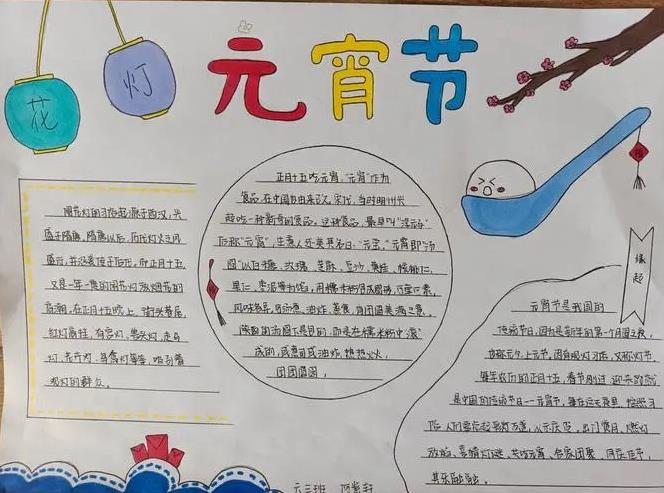 元宵节
花灯
闹花灯的习俗起源于西汉，兴
盛于隋唐，隋唐以后，历代灯火之风
盛行，并沿袭传于后代，而正月十五，
又是一年一度的闹花灯放烟花的
高潮，在正月十五晚上，街头巷尾，
红灯高挂，有宫灯，兽头灯，走马
灯，花卉灯，鸟禽灯等等，吸引着
观灯的群众。
正月十五吃元宵，“元宵”作为
食品，在中国也由来已久，宋代，当时明州兴
起吃一种新奇的食品，这种食品，最早叫“浮元子”
后称“元宵”，生意人还美其名曰：“元宝。”元宵即“汤
圆”以白糖、玫瑰、芝麻、豆沙、黄桂、核桃仁、
果仁、枣泥等为馅，用糯米粉包成圆形，可荤可素，
风味各异，可汤煮、油炸、蒸食，有团圆美满之意，
陕西的汤圆不是包的，而是在糯米粉中“滚”
成的，或煮司或油炸，热热火火，
团团圆圆。
缘起
元宵节是我国的
传统节日，因为是新年的第一个月圆之夜，
也称元夕、上元节，因有观灯习俗，又称灯节，
每年农历的正月十五，春节刚过，迎来的就
是中国的传统节日—元宵节，
人们要点起彩灯万盏，以示庆贺，出门赏月、燃灯
放焰、喜猜灯谜、共吃元宵、合家团聚、同庆佳节，
其乐融融。
六三班